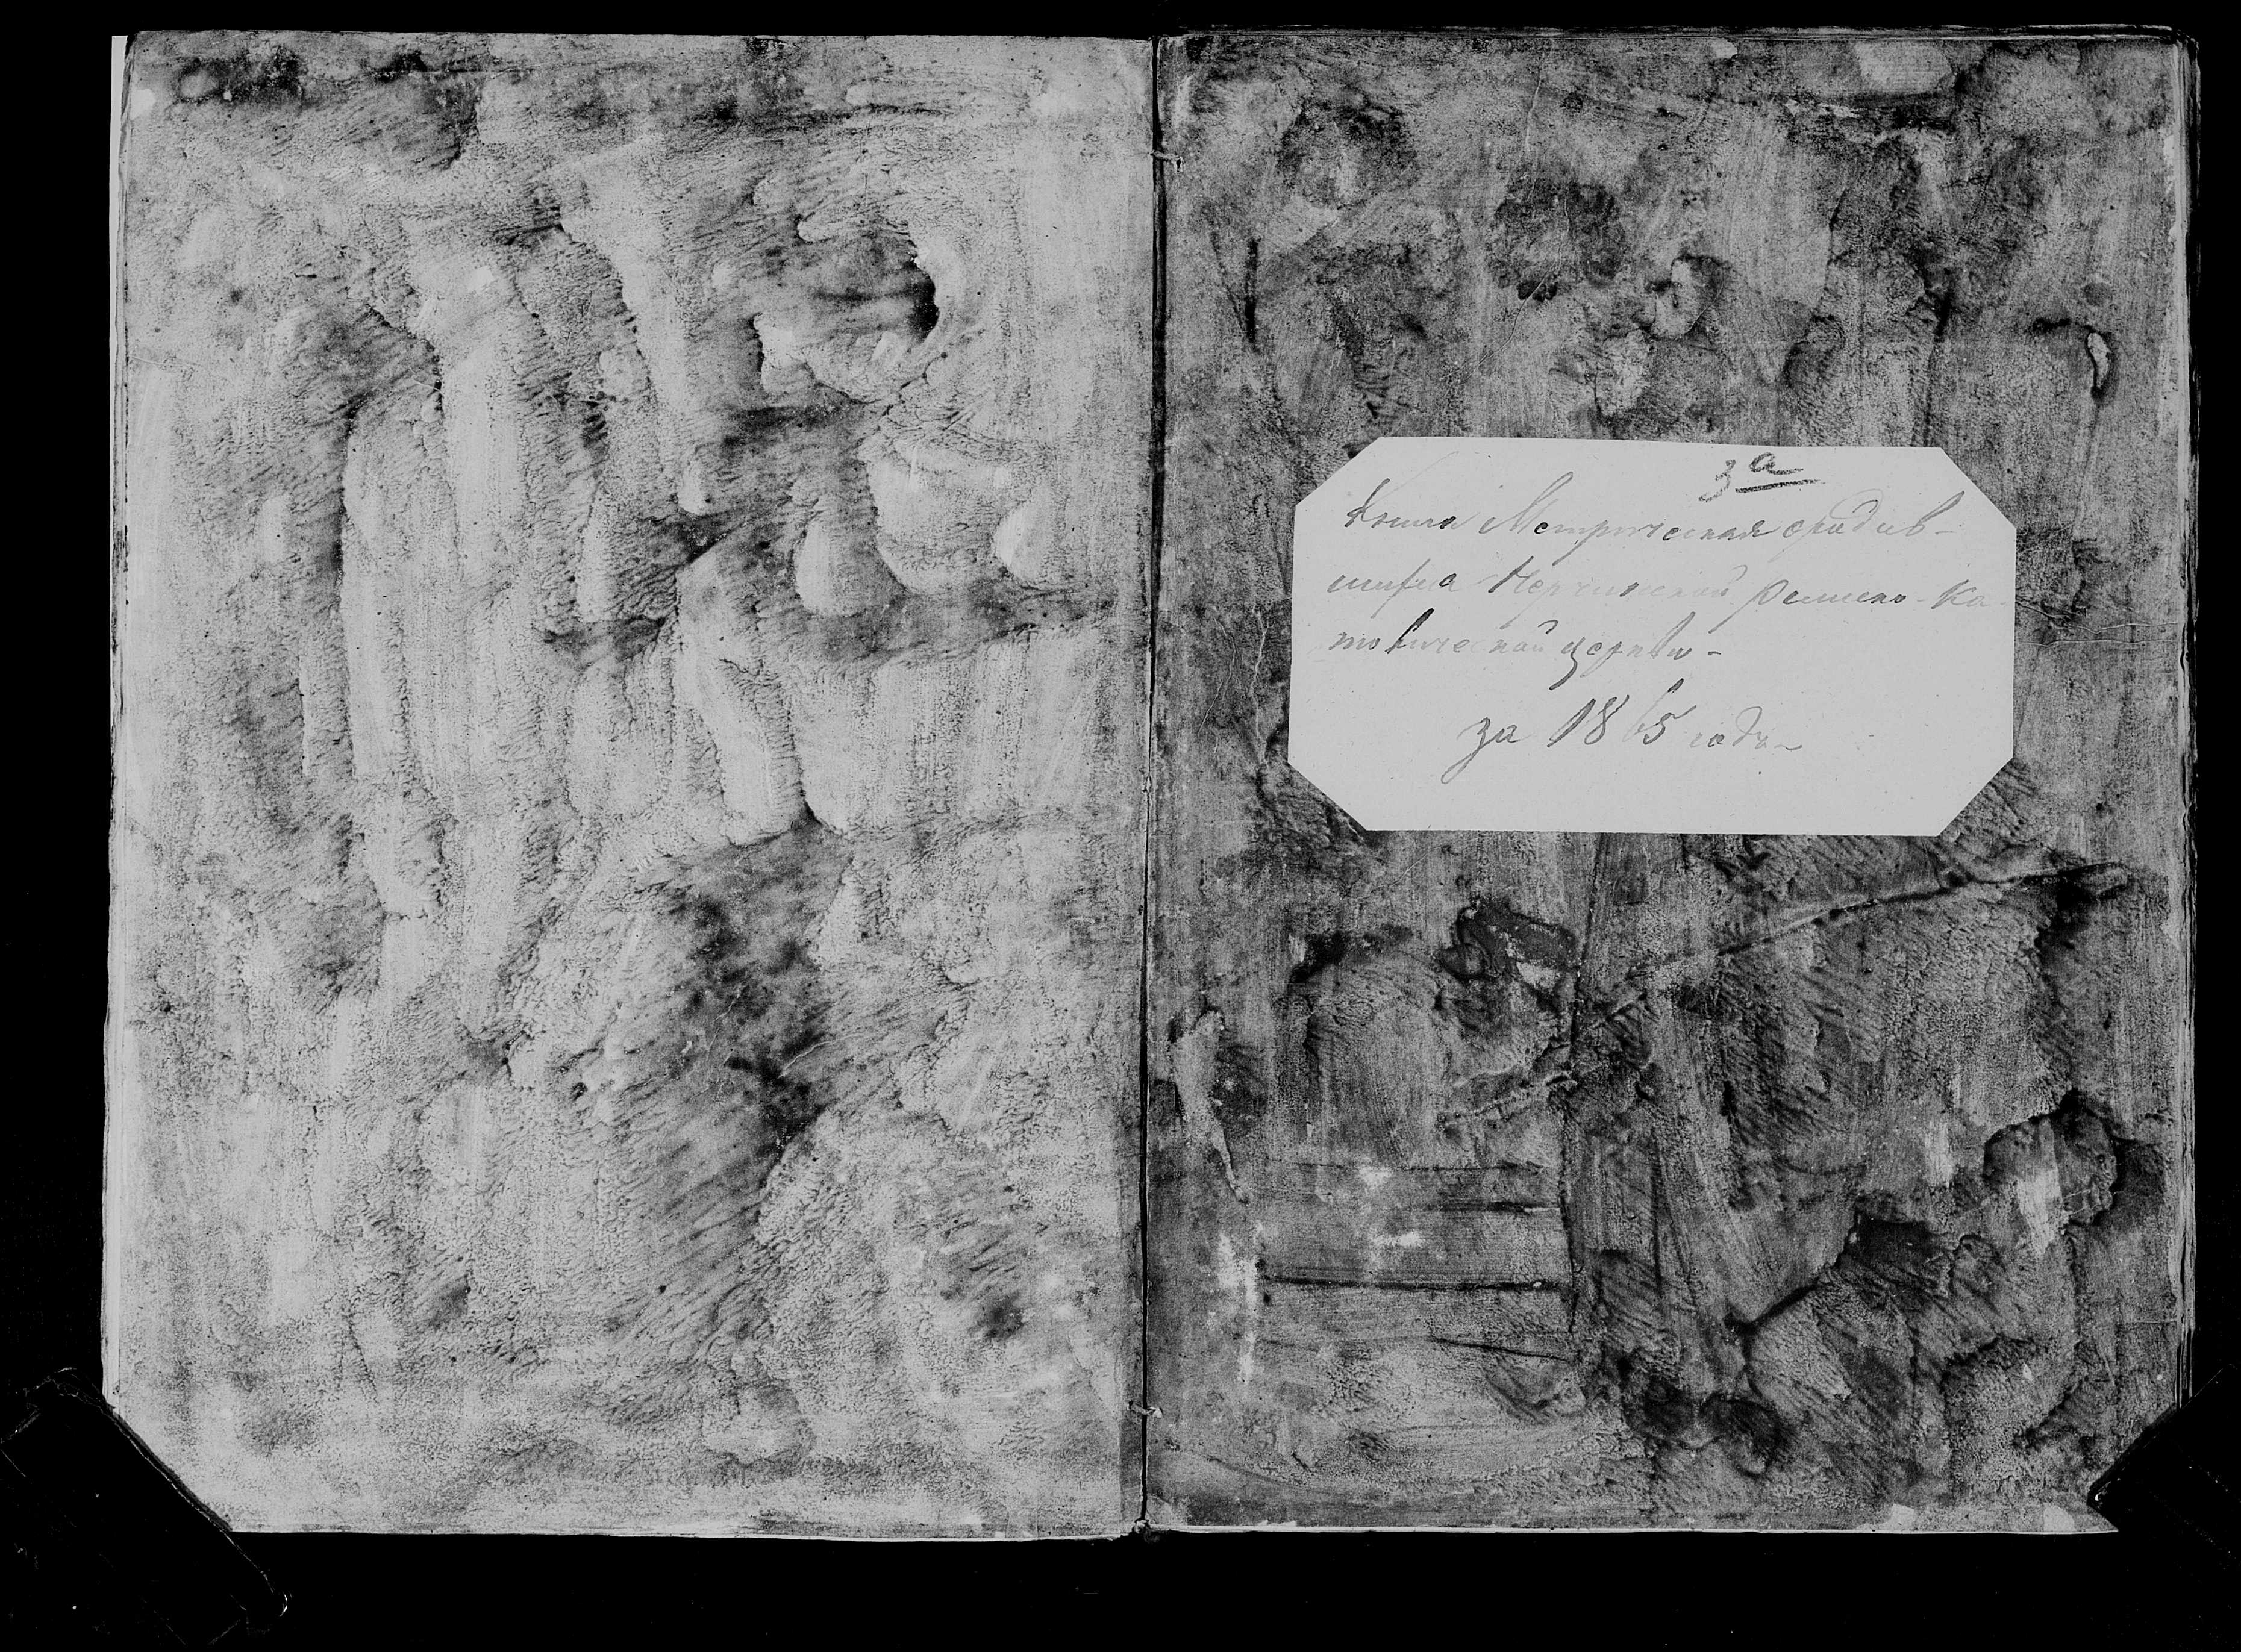 3а
Книга Метрическая о родив-
шихся Нерчинской Римско-Ка-
толической церкви -
за 1865 годъ